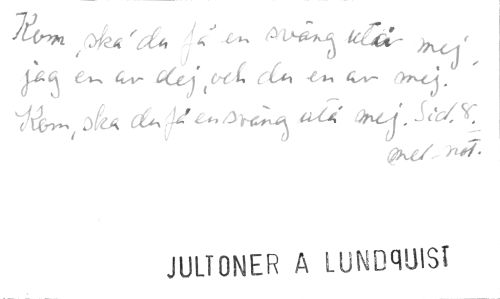 Kom, ska' du få en sväng utå mej,
jag en av dej, och du en av mej.
Kom, ska du få en sväng utå mej. Sid. 8.
med not.
JULTONER A LUNDQUIST